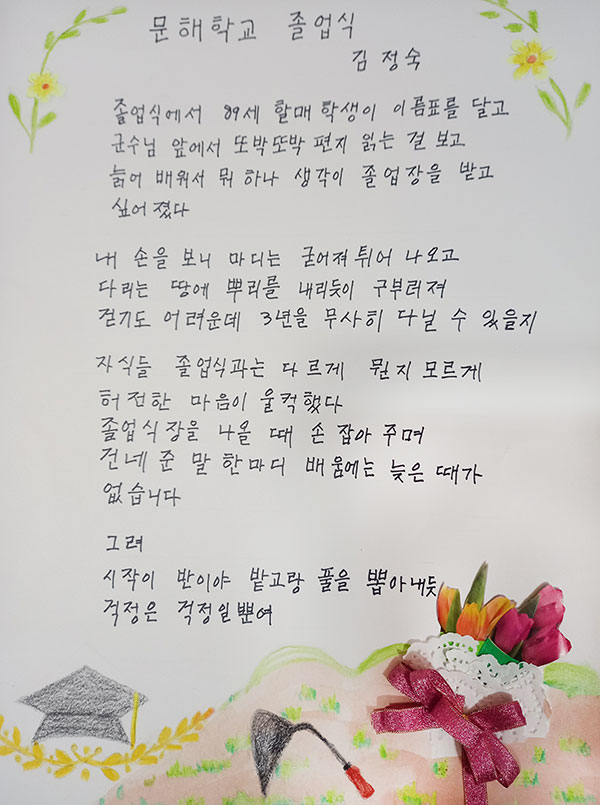 문해학교 졸업식
김정숙
졸업식에서 89세 할매 학생이 이름표를 달고
군수님 앞에서 또박또박 편지 읽는 걸 보고
늙어 배워서 뭐 하나 생각이 졸업장을 받고
싶어졌다
내 손을 보니 마디는 굳어져 튀어 나오고
다리는 땅에 뿌리를 내리듯이 구부러져
걷기도 어려운데 3년을 무사히 다닐 수 있을지
자식들 졸업식과는 다르게 뭔지 모르게
허전한 마음이 울컥했다
졸업식장을 나올 때 손 잡아 주며
건네 준 말 한마디 배움에는 늦은 때가
없습니다
그려
시작이 반이야 밭고랑 풀을 뽑아내듯
걱정은 걱정일뿐여